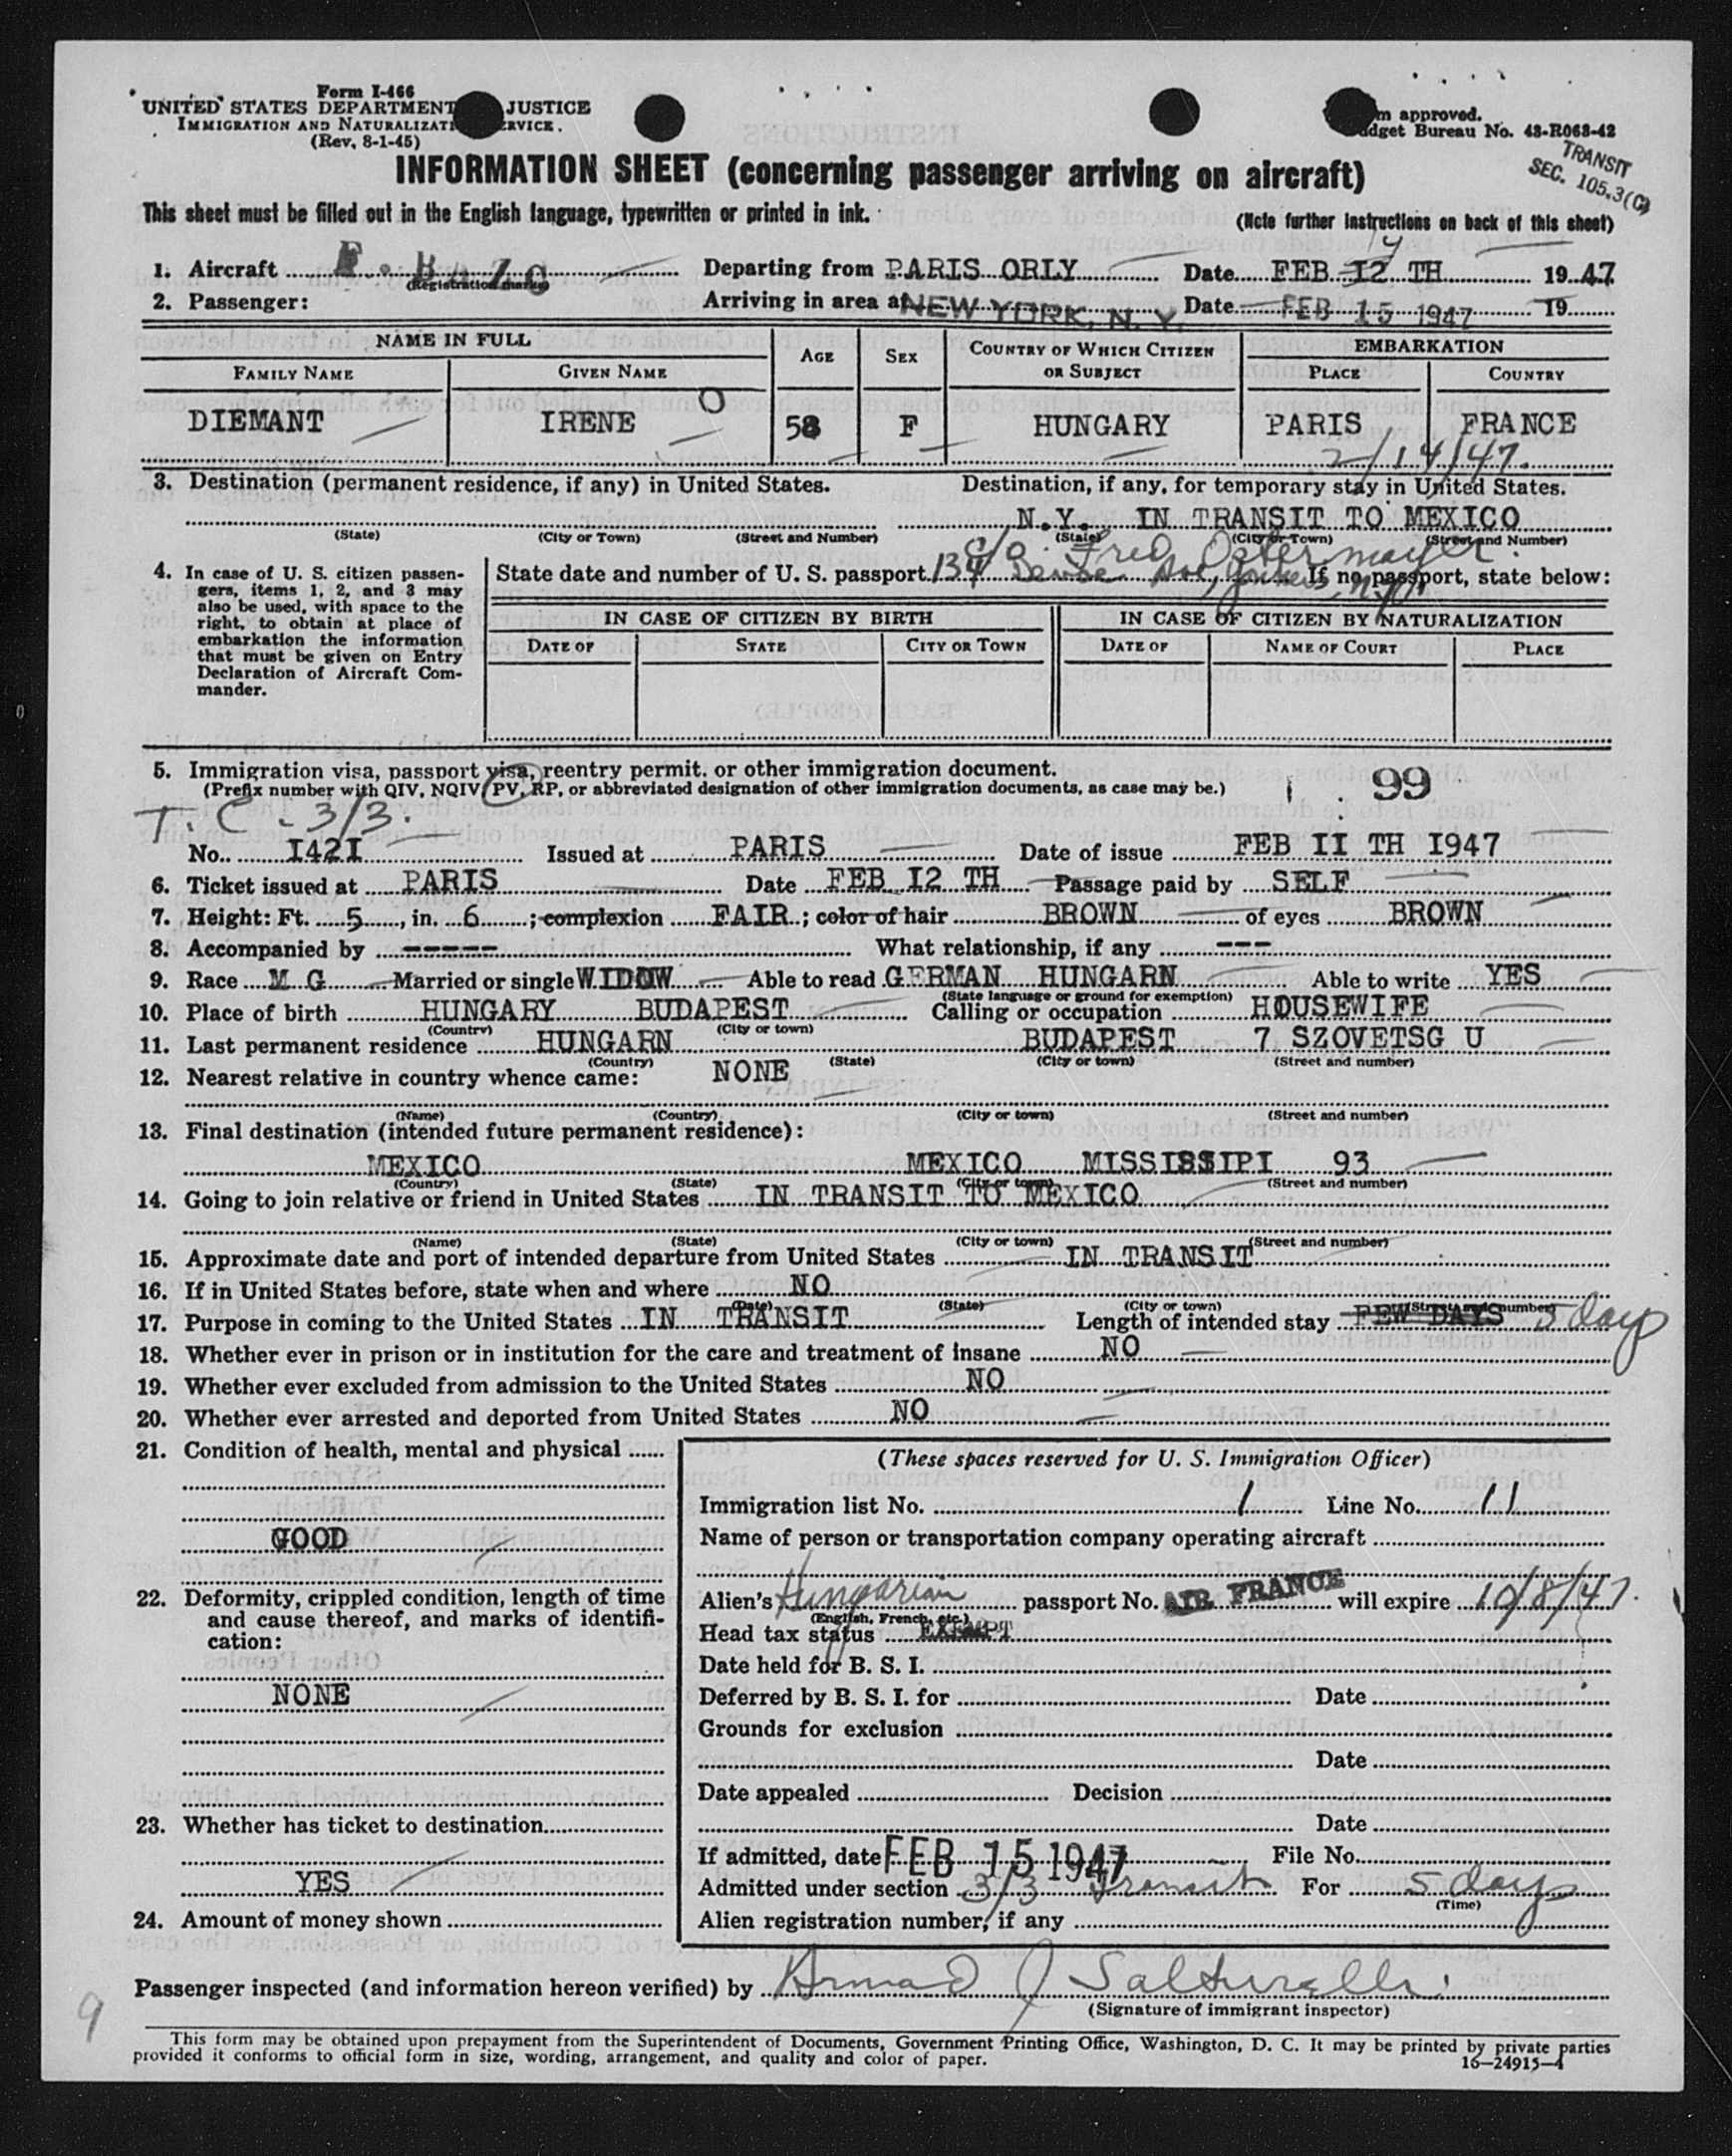 Form I-466
UNITED STATES DEPARTMENT JUSTICE
IMMIGRATION AND NATURALIZATI ERVICE.
(Rev. 8-1-45)
m approved.
dget Bureau No. 43-R063-42
TRANSIT
SEC. 105.3(C)
INFORMATION SHEET (concerning passenger arriving on aircraft)
This sheet must be filled out in the English language, typewritten or printed in ink.
(Note further instructions on back of this sheet)
1. Aircraft F. BAZC Departing from PARIS ORLY Date FEB 12 TH 14 1947
(Registration marks)
2. Passenger: Arriving in area at NEW YORK, N. Y. Date FEB 15 1947 19
NAME IN FULL AGE SEX COUNTRY OF WHICH CITIZEN OR SUBJECT EMBARKATION
FAMILY NAME GIVEN NAME PLACE COUNTRY
DIEMANT IRENE O 58 F HUNGARY PARIS FRANCE
2/14/47.
3. Destination (permanent residence, if any) in United States. Destination, if any, for temporary stay in United States.
N.Y. IN TRANSIT TO MEXICO
(State) (City or Town) (Street and Number) (State) (City or Town) (Street and Number)
c/o. Fred Ostermayer.
4. In case of U. S. citizen passengers, items 1, 2, and 3 may also be used, with space to the right, to obtain at place of embarkation the information that must be given on Entry Declaration of Aircraft Commander.
State date and number of U. S. passport 134 Ave, Yonkers, N.Y. If no passport, state below:
IN CASE OF CITIZEN BY BIRTH IN CASE OF CITIZEN BY NATURALIZATION
DATE OF STATE CITY OR TOWN DATE OF NAME OF COURT PLACE
5. Immigration visa, passport visa, reentry permit, or other immigration document.
(Prefix number with QIV, NQIV, PV, RP, or abbreviated designation of other immigration documents, as case may be.) 99
T. C. - 3/3.
No. I42I Issued at PARIS Date of issue FEB II TH I947
6. Ticket issued at PARIS Date FEB I2 TH Passage paid by SELF
7. Height: Ft. 5, in. 6; complexion FAIR; color of hair BROWN of eyes BROWN
8. Accompanied by ----- What relationship, if any ---
9. Race M G Married or single WIDOW Able to read GERMAN HUNGARN Able to write YES
(State language or ground for exemption)
10. Place of birth HUNGARY BUDAPEST Calling or occupation HOUSEWIFE
(Country) (City or town)
11. Last permanent residence HUNGARN BUDAPEST 7 SZOVETSG U
(Country) (State) (City or town) (Street and number)
12. Nearest relative in country whence came: NONE
(Name) (Country) (City or town) (Street and number)
13. Final destination (intended future permanent residence):
MEXICO MEXICO MISSISSIPI 93
(Country) (State) (City or town) (Street and number)
14. Going to join relative or friend in United States IN TRANSIT TO MEXICO
(Name) (State) (City or town) (Street and number)
15. Approximate date and port of intended departure from United States IN TRANSIT
16. If in United States before, state when and where NO
(Date) (State) (City or town) (Street and number)
17. Purpose in coming to the United States IN TRANSIT Length of intended stay FEW DAYS 5 days
18. Whether ever in prison or in institution for the care and treatment of insane NO
19. Whether ever excluded from admission to the United States NO
20. Whether ever arrested and deported from United States NO
21. Condition of health, mental and physical
GOOD
22. Deformity, crippled condition, length of time and cause thereof, and marks of identification:
NONE
23. Whether has ticket to destination
YES
24. Amount of money shown
(These spaces reserved for U. S. Immigration Officer)
Immigration list No. 1 Line No. 11
Name of person or transportation company operating aircraft
AIR FRANCE
Alien's Hungarian passport No. will expire 10/8/47.
(English, French, etc.)
Head tax status EXEMPT
Date held for B. S. I.
Deferred by B. S. I. for Date
Grounds for exclusion
Date
Date appealed Decision
Date
If admitted, date FEB 15 1947 File No.
Admitted under section 3/3 Transit For 5 days
(Time)
Alien registration number, if any
Passenger inspected (and information hereon verified) by Armand J Salturelli
(Signature of immigrant inspector)
9
This form may be obtained upon prepayment from the Superintendent of Documents, Government Printing Office, Washington, D. C. It may be printed by private parties
provided it conforms to official form in size, wording, arrangement, and quality and color of paper.
16—24915-4